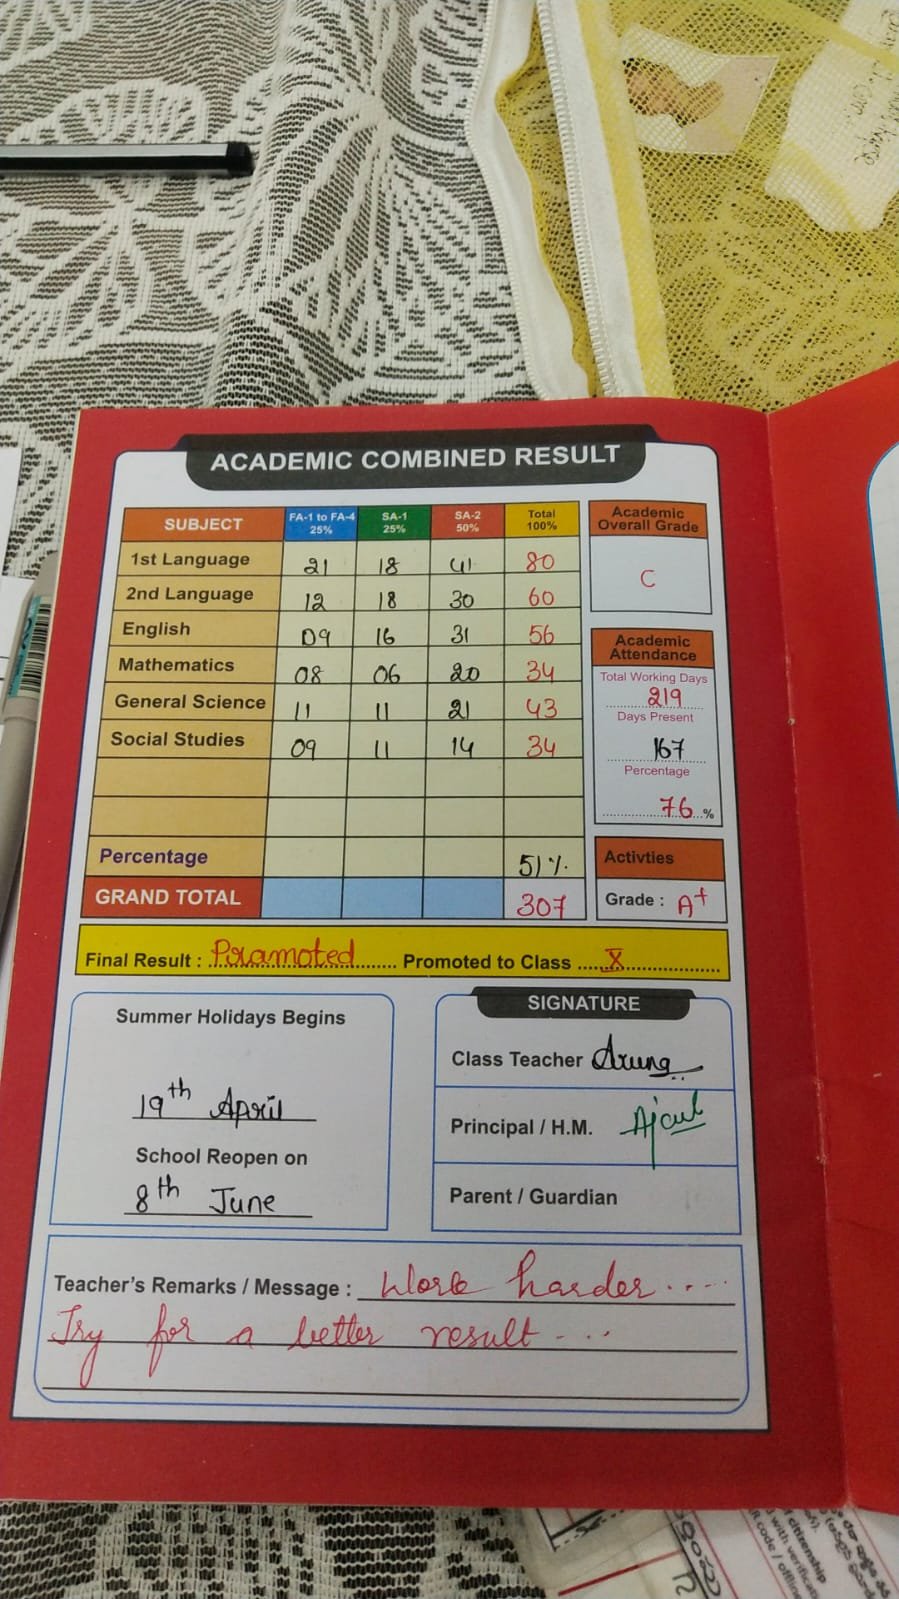 ACADEMIC COMBINED RESULT
SUBJECT FA-1 to FA-4 25% SA-1 25% SA-2 50% Total 100%
1st Language 21 18 41 80
2nd Language 12 18 30 60
English 09 16 31 56
Mathematics 08 06 20 34
General Science 11 11 21 43
Social Studies 09 11 14 34
Percentage 51%
GRAND TOTAL 307
Academic
Overall Grade
C
Academic
Attendance
Total Working Days
219
Days Present
167
Percentage
76 %
Activties
Grade : A+
Final Result : Pramoted Promoted to Class X
Summer Holidays Begins
19th April
School Reopen on
8th June
SIGNATURE
Class Teacher
Principal / H.M.
Parent / Guardian
Teacher's Remarks / Message : Work harder....
Try for a better result...
citizenship
with verification
code / offline